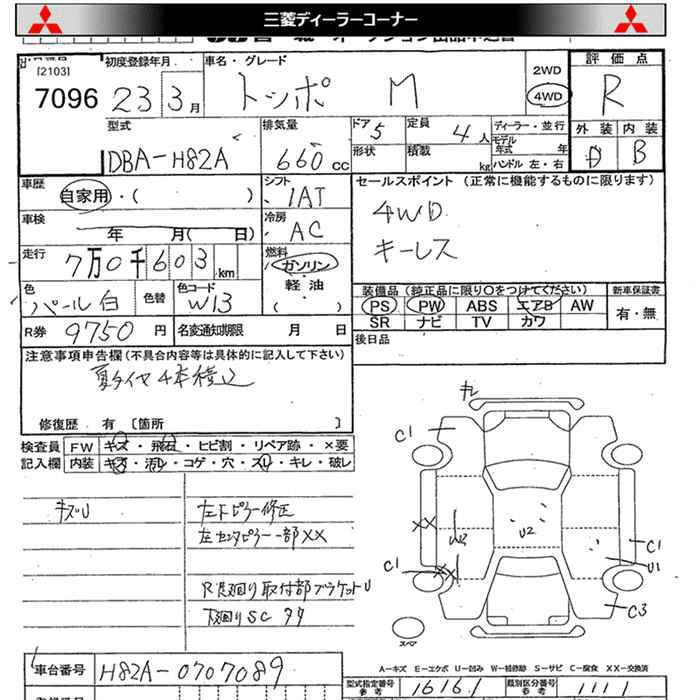 三菱ディーラーコーナー
[2103]
7096
初度登録年月
23 3月
車名・グレード
トッポ M
2WD
4WD
評価点
R
外装 内装
D B
型式
DBA-H82A
排気量
660cc
ドア 5
形状
定員 4人
積載 kg
ディーラー・並行
モデル年式 年
ハンドル 左・右
車歴
自家用・( )
シフト
IAT
セールスポイント (正常に機能するものに限ります)
4WD
キーレス
車検
年 月( 日)
冷房
AC
走行
7万0千603km
燃料
ガソリン
軽油
( )
色
パール白
色替
色コード
W13
装備品 (純正品に限り○をつけてください)
PS PW ABS エアB AW
SR ナビ TV カワ
新車保証書
有・無
R券 9750円
名変通知期限 月 日
後日品
注意事項申告欄(不具合内容等は具体的に記入して下さい)
夏タイヤ4本積込
修復歴 有 [箇所 ]
検査員
記入欄
FW キズ・飛石・ヒビ割・リペア跡・×要
内装 キズ・汚レ・コゲ・穴・スレ・キレ・破レ
キズU
左Fピラー修正
左センタピラー一部XX
下廻りSC
キレ
C1
XX
U2
U2
C1
XX
C1
U1
C3
スペア
A-キズ E-エクボ U-凹み W-補修跡 S-サビ C-腐食 XX-交換済
車台番号
H82A-0707089
型式指定番号
参考
16161
類別区分番号
参考
1111